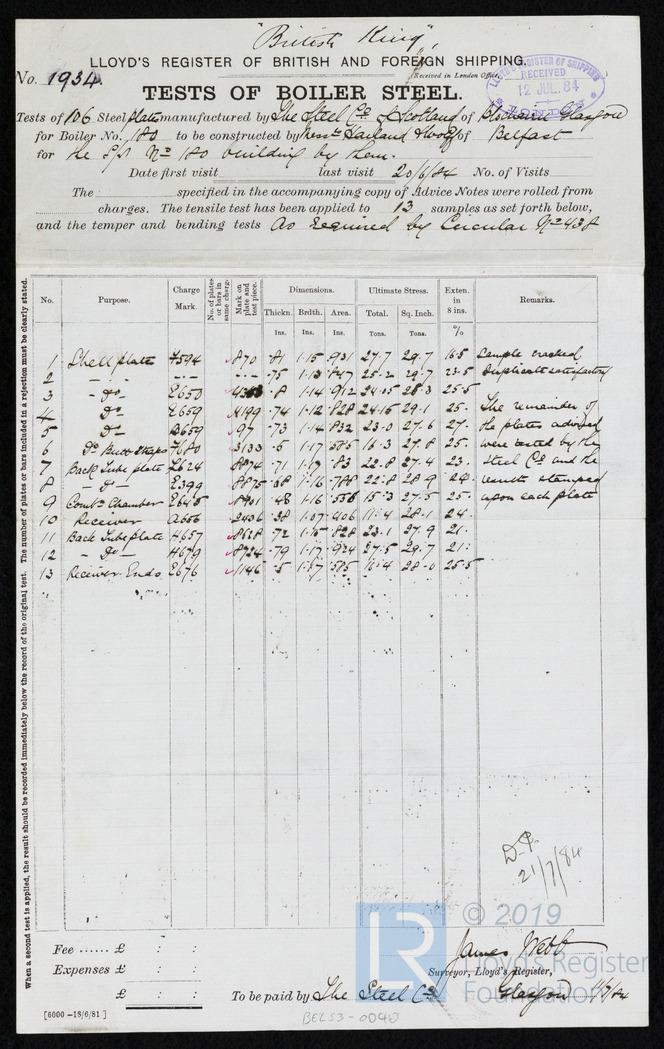 "British King"
LLOYD'S REGISTER OF BRITISH AND FOREIGN SHIPPING.
No. 1934.
Received in London Office,
LLOYD'S REGISTER OF SHIPPING
RECEIVED
12 JUL. 84
LONDON
TESTS OF BOILER STEEL.
Tests of 106 Steel plates manufactured by The Steel Co. of Scotland of Blochairn Glasgow
for Boiler No. 180 to be constructed by Messrs Harland & Wolff of Belfast
for the S/S No 180 building by them.
Date first visit last visit 20/6/84 No. of Visits
The specified in the accompanying copy of Advice Notes were rolled from
charges. The tensile test has been applied to 13 samples as set forth below,
and the temper and bending tests As required by Circular No 438
When a second test is applied, the result should be recorded immediately below the record of the original test. The number of plates or bars included in a rejection must be clearly stated.
No. Purpose. Charge Mark. No. of plates or bars in same charge. Mark on plate and test piece. Dimensions. Ultimate Stress. Exten. in 8 ins. Remarks.
Thickn. Brdth. Area. Total. Sq. Inch.
Ins. Ins. Ins. Tons. Tons. %
1 Shell plate 7594 870 .81 1.15 .931 27.7 29.7 16.5 Sample cracked
2 - - - - - .75 1.13 .847 25.2 29.7 23.5 Duplicate satisfactory
3 - Do - E650 .8 1.14 .912 28.3 25.5
4 Do E659 4199 .74 1.12 .828 24.15 29.1 25. The remainder of
5 Do B659 97 .73 1.14 .832 23.0 27.6 27. the plates advised
6 Do Butt Straps H680 3133 .5 1.17 .585 16.3 27.8 25. were tested by the
7 Back Tube plate L624 8874 .71 1.17 .83 22.8 27.4 23. Steel Co. and the
8 - Do - E399 8875 .68 1.16 .788 22.8 28.9 24. results stamped
9 Combn Chamber E645 .48 1.16 .556 15.3 27.5 25. upon each plate
10 Receiver A656 2436 .38 1.07 .406 11.4 28.1 24.
11 Back Tube plate H657 8628 .72 1.15 .828 23.1 27.9 21.
12 - Do - H659 8724 .79 1.17 .924 27.5 29.7 21.
13 Receiver Ends E676 1146 .5 1.17 .585 28.0 25.5
D.P.
21/7/84
© 2019
LR
Lloyd's Register
Foundation
Fee ...... £ : :
Expenses £ : :
£ : :
James Webb
Surveyor, Lloyd's Register,
To be paid by The Steel Co. Glasgow 11/7/84
[6000-18/6/81]
BEL53-0040